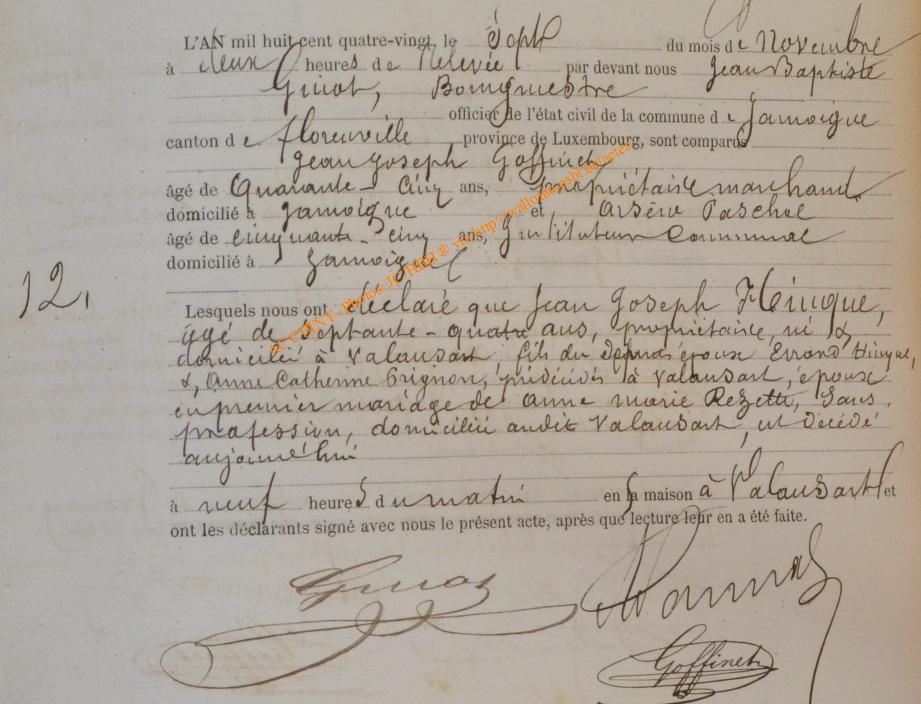 L'AN mil huit cent quatre-vingt, le Sept du mois de Novembre
à deux heures de Relevée par devant nous Jean Baptiste
Ginot, Bourgmestre
officier de l'état civil de la commune de Jamoigne
canton de florenville, province de Luxembourg, sont comparus
Jean Joseph Goffinet
âgé de Quarante-Cinq ans, propriétaire marchand
domicilié à Jamoigne et Arsène Paschal
âgé de Cinquante-Cinq ans, Instituteur Communal
domicilié à Jamoigne
12.
Lesquels nous ont déclaré que Jean Joseph Hinque,
âgé de septante-quatre ans, propriétaire, né &
domicilié à Valansart, fils du époux Hinque,
&, Anne Catherine Grignon, prédécédés à Valansart, époux
en premier mariage de Anne Marie Rezette, Sans
profession, domiciliée audit Valansart, est décédé
aujourd'hui
à neuf heures du matin en S maison à Valansart et
ont les déclarants signé avec nous le présent acte, après que lecture leur en a été faite.
Ginot
Goffinet